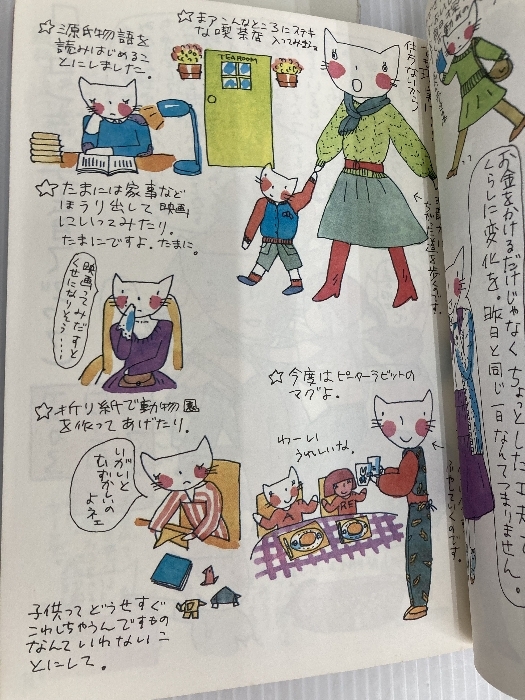 ☆源氏物語を
読みはじめるこ
とにしました。
☆まアこんなところにステキ
な喫茶店 入ってみましょ
TEAROOM
仕方ないから
☆たまには家事など
ほうり出して映画
にいってみたり。
たまにですよ。たまに。
映画ってみだすと
くせになりそう・・・・
☆折り紙で動物園
を作ってあげたり。
いがいと
むずかしいの
よネェ
子供ってどうせすぐ
こわしちゃうんですもの
なんていわないこ
とにして。
☆今度はピーターラビットの
マグよ。
わーい
うれしいな。
お金をかけるだけじゃなく ちょっとした工夫で
くらしに変化を。昨日と同じ一日なんてつまりません。